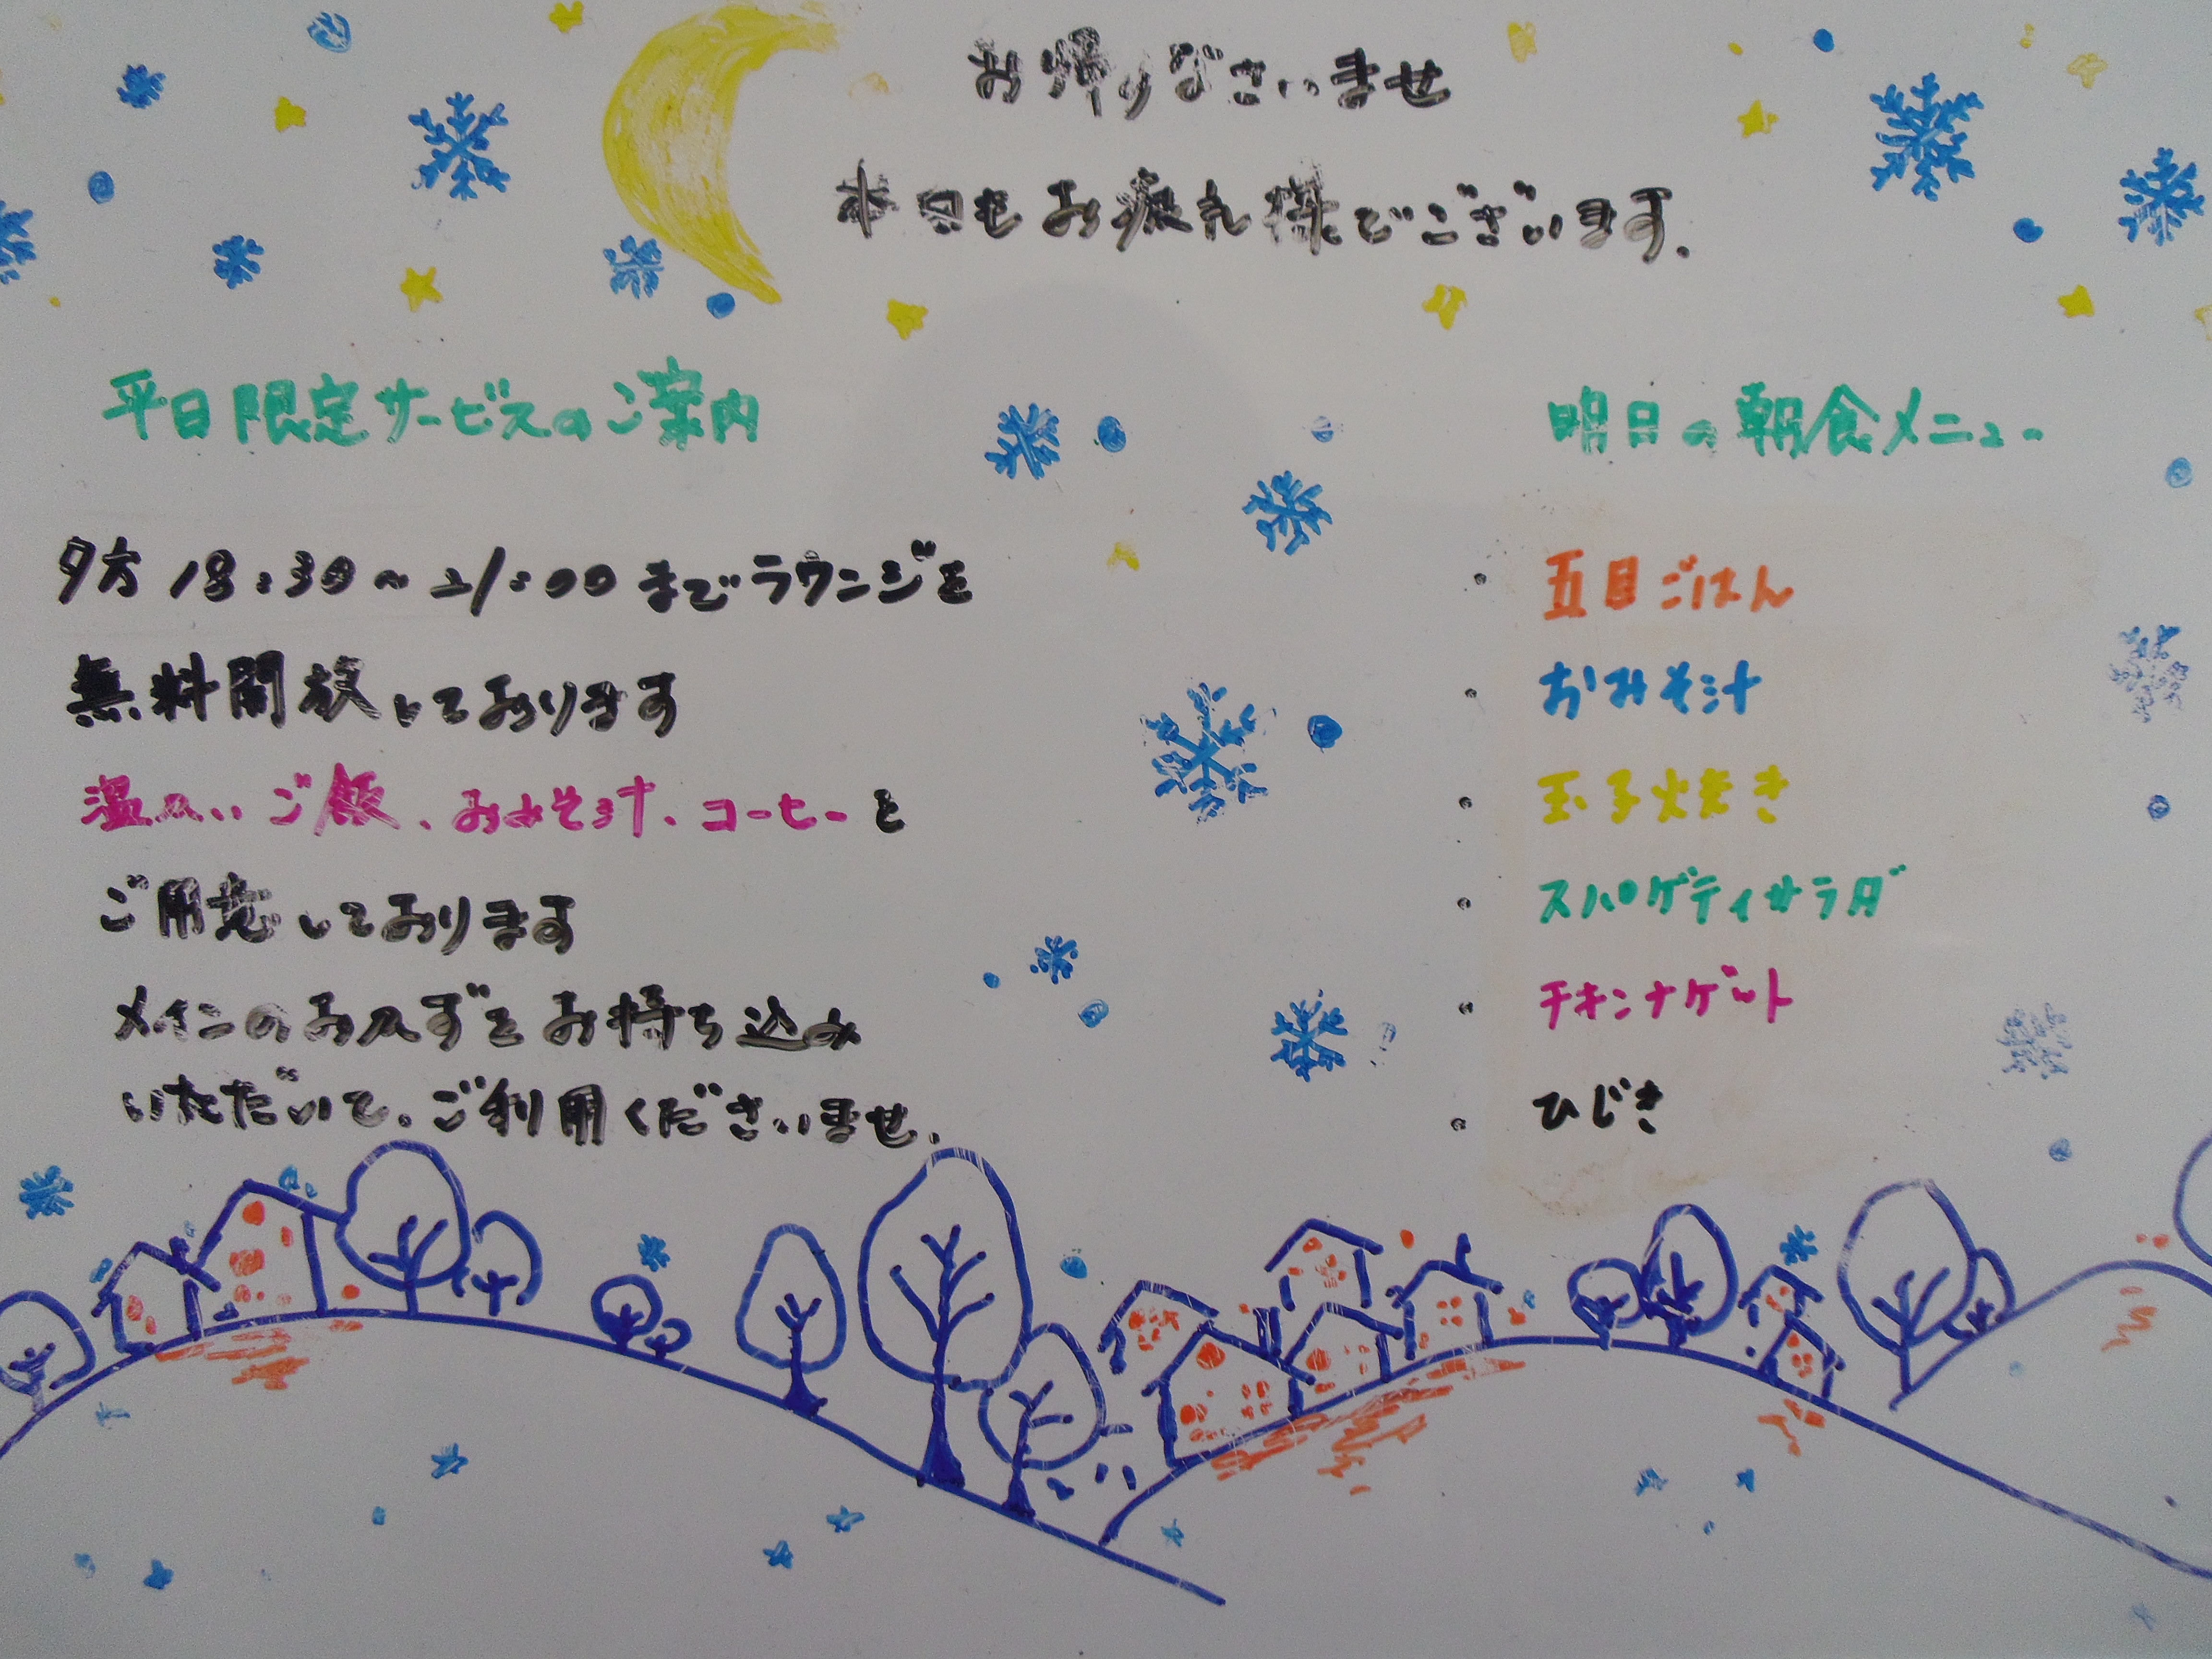 お帰りなさいませ
本日もお疲れ様でございます.
平日限定サービスのご案内
夕方 18:30~21:00 までラウンジを
無料開放しております
温かいご飯、おみそ汁、コーヒーを
ご用意しております
メインのおかずをお持ち込み
いただいて、ご利用くださいませ.
明日の朝食メニュー
・ 五目ごはん
・ おみそ汁
・ 玉子焼き
・ スパゲティサラダ
・ チキンナゲット
・ ひじき